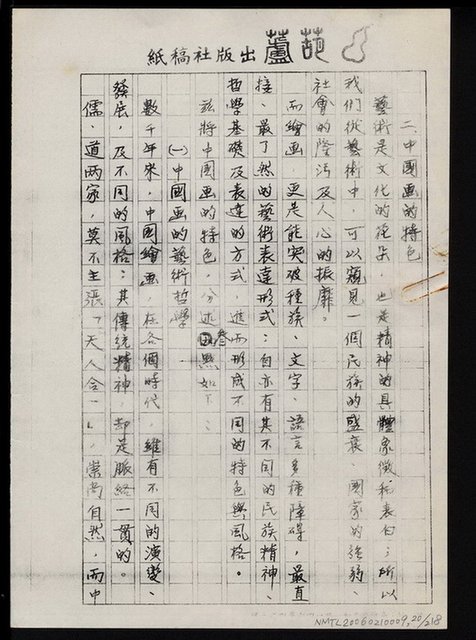 葫蘆出版社稿紙
二、中國画的特色
藝術是文化的花朵，也是精神的具體象徵和表白；所以
我們從藝術中，可以窺見一個民族的盛衰、國家的強弱、
社會的隆污及人心的振靡。
而繪画，更是能突破種族、文字、語言多種障碍，最直
接、最了然的藝術表達形式；自亦有其不同的民族精神、
哲學基礎及表達的方式，進而形成不同的特色與風格。
茲將中國画的特色，分述叁點如下：
(一)中國画的藝術哲學
數千年來，中國繪画，在各個時代，雖有不同的演變、
發展，及不同的風格；其傳統精神，却是脈絡一貫的。
儒、道兩家，莫不主張「天人合一」，崇尚自然，而中
NMTL20060210009, 20/218